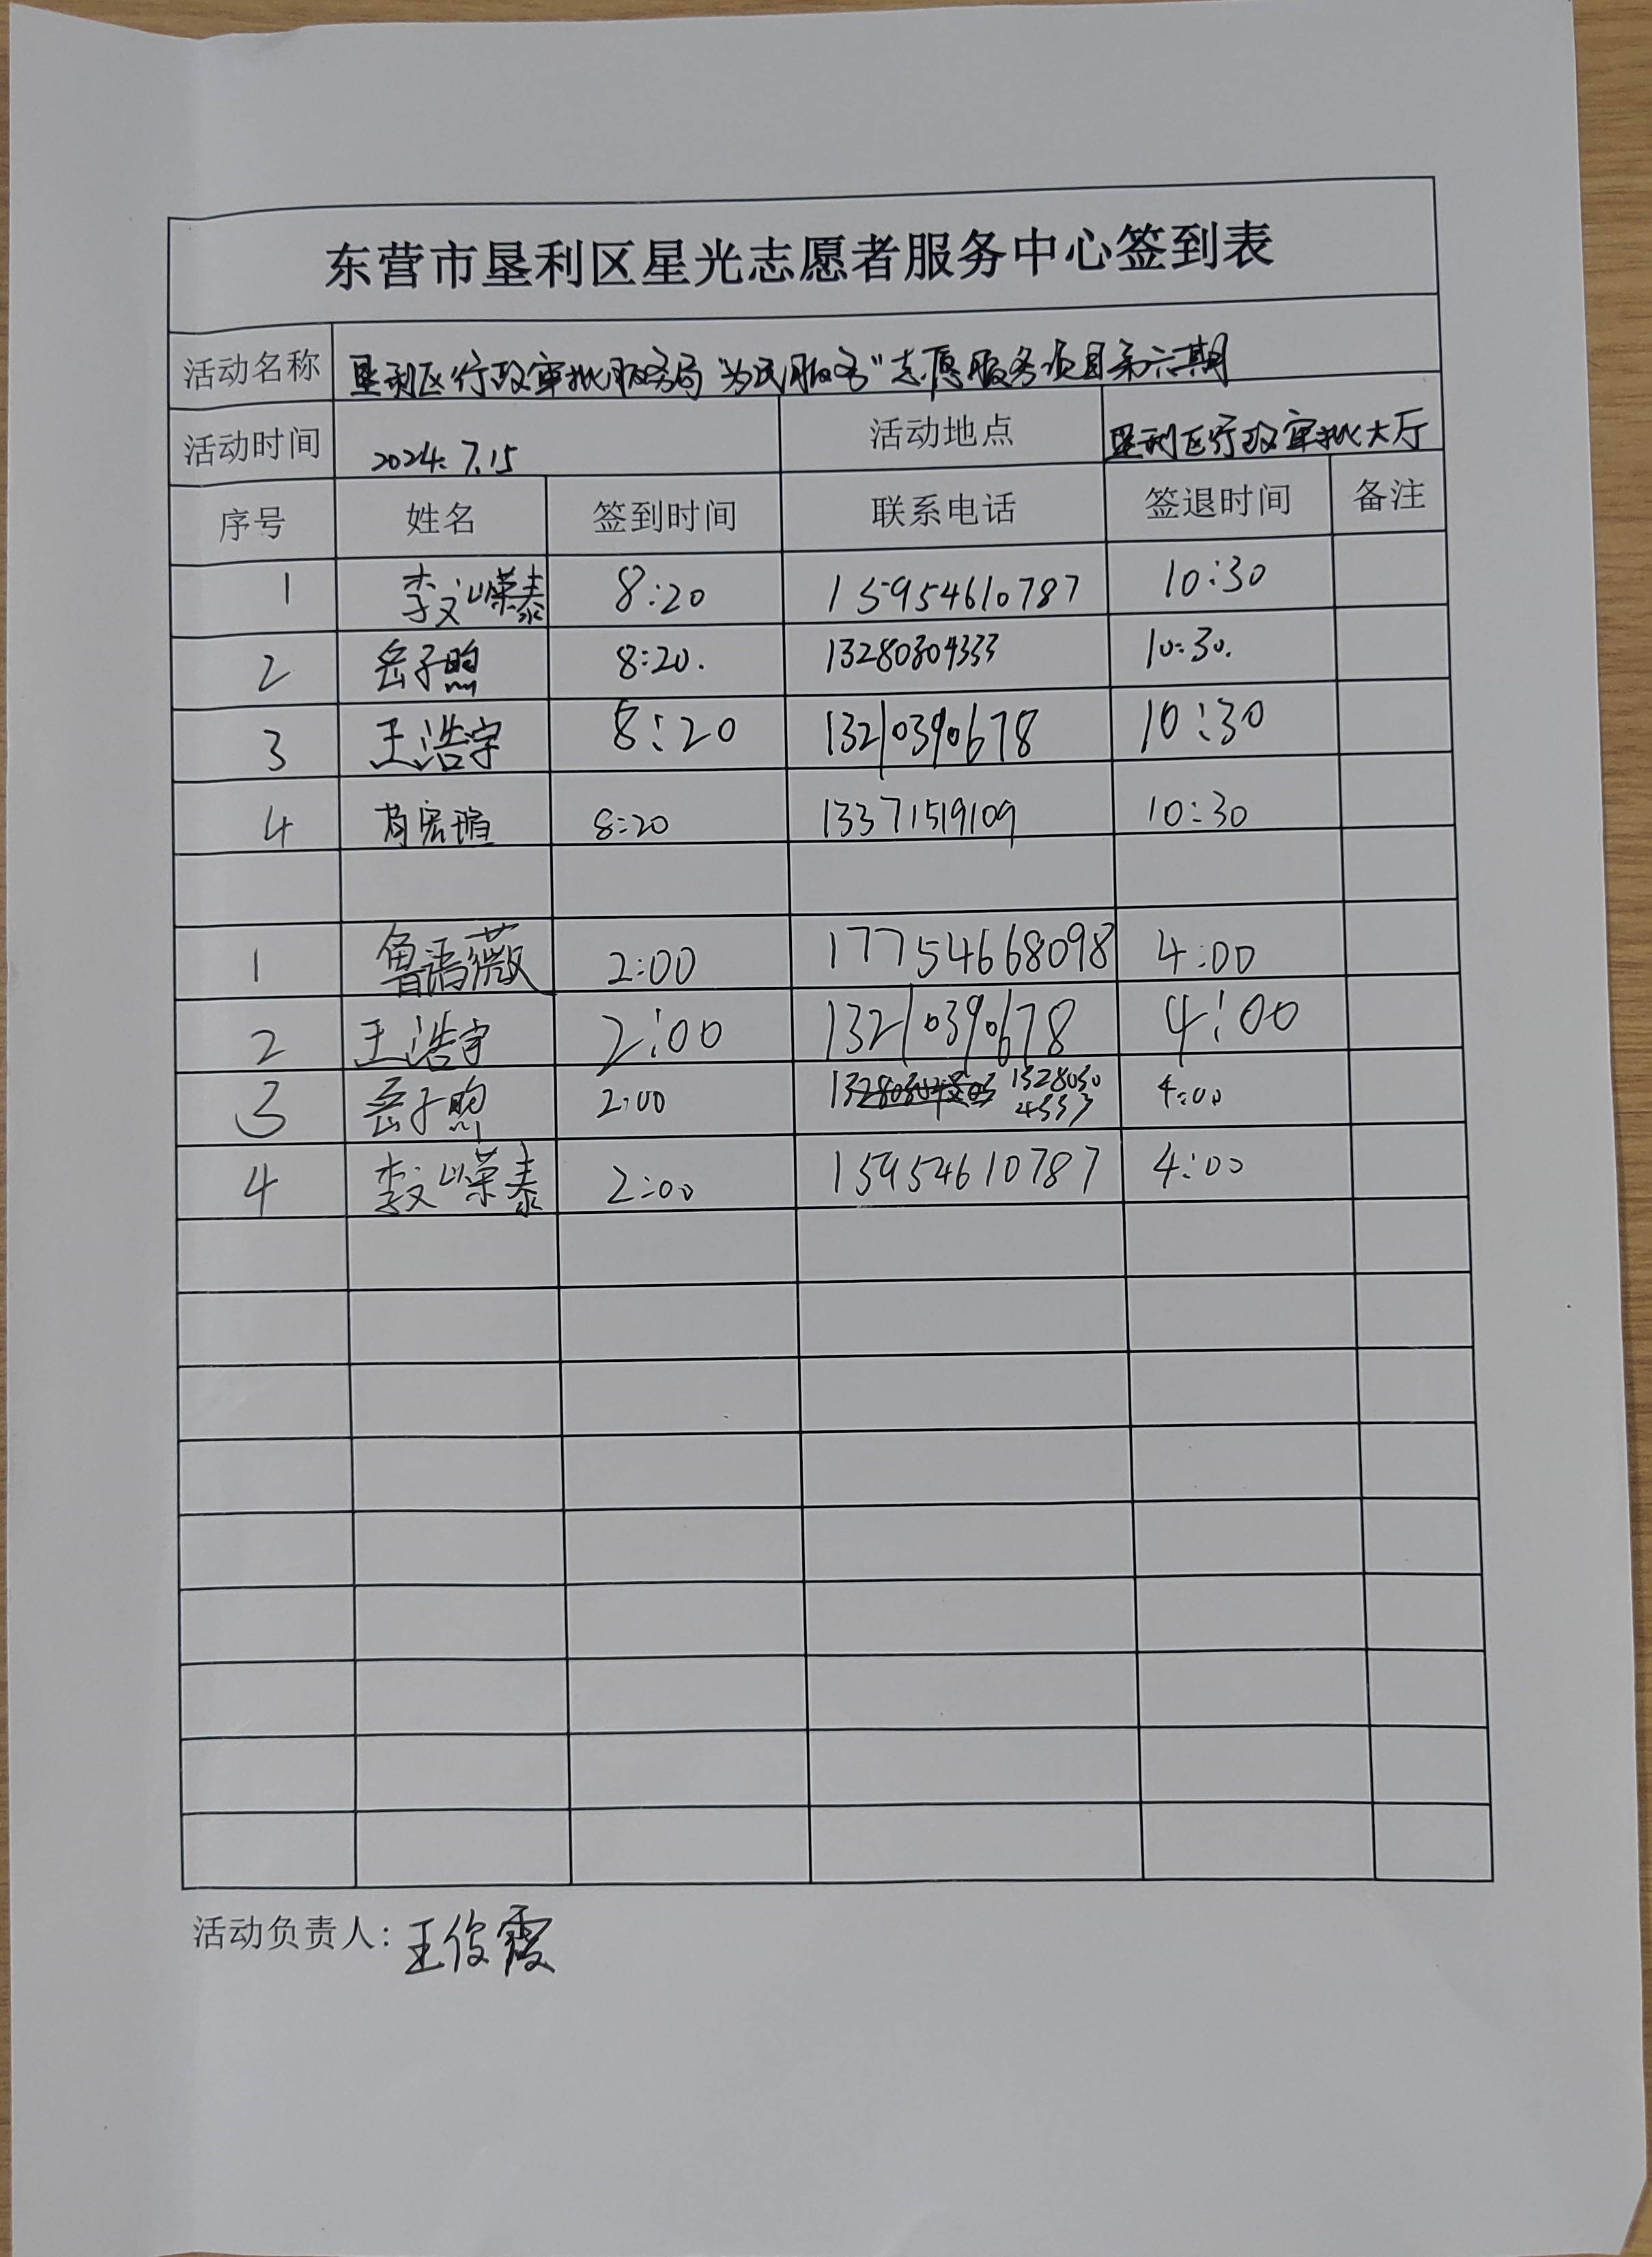 东营市垦利区星光志愿者服务中心签到表
活动名称 垦利区行政审批服务局“为民服务”志愿服务项目第六期
活动时间 2024.7.15 活动地点 垦利区行政审批大厅
序号 姓名 签到时间 联系电话 签退时间 备注
1 李文嵘泰 8:20 15954610787 10:30
2 岳子煦 8:20. 13280304333 10:30.
3 王浩宇 8:20 13210390678 10:30
4 宏瑄 8:20 13371519109 10:30
1 鲁语薇 2:00 17754668098 4:00
2 王浩宇 2:00 13210390678 4:00
3 岳子煦 2:00 1328030 4:00
4333
4 李文嵘泰 2:00 15954610787 4:00
活动负责人: 王俊霞